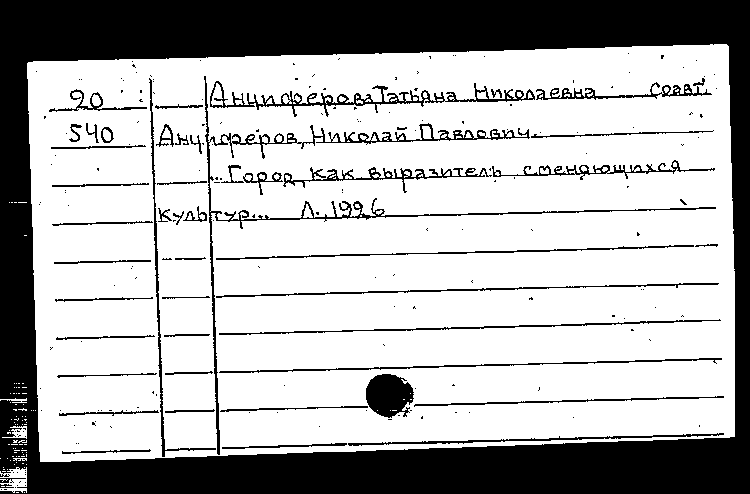 20 Анциферова, Татьяна Николаевна соавт.
540 Анциферов, Николай Павлович.
... Город, как выразитель сменяющихся
культур... Л., 1926